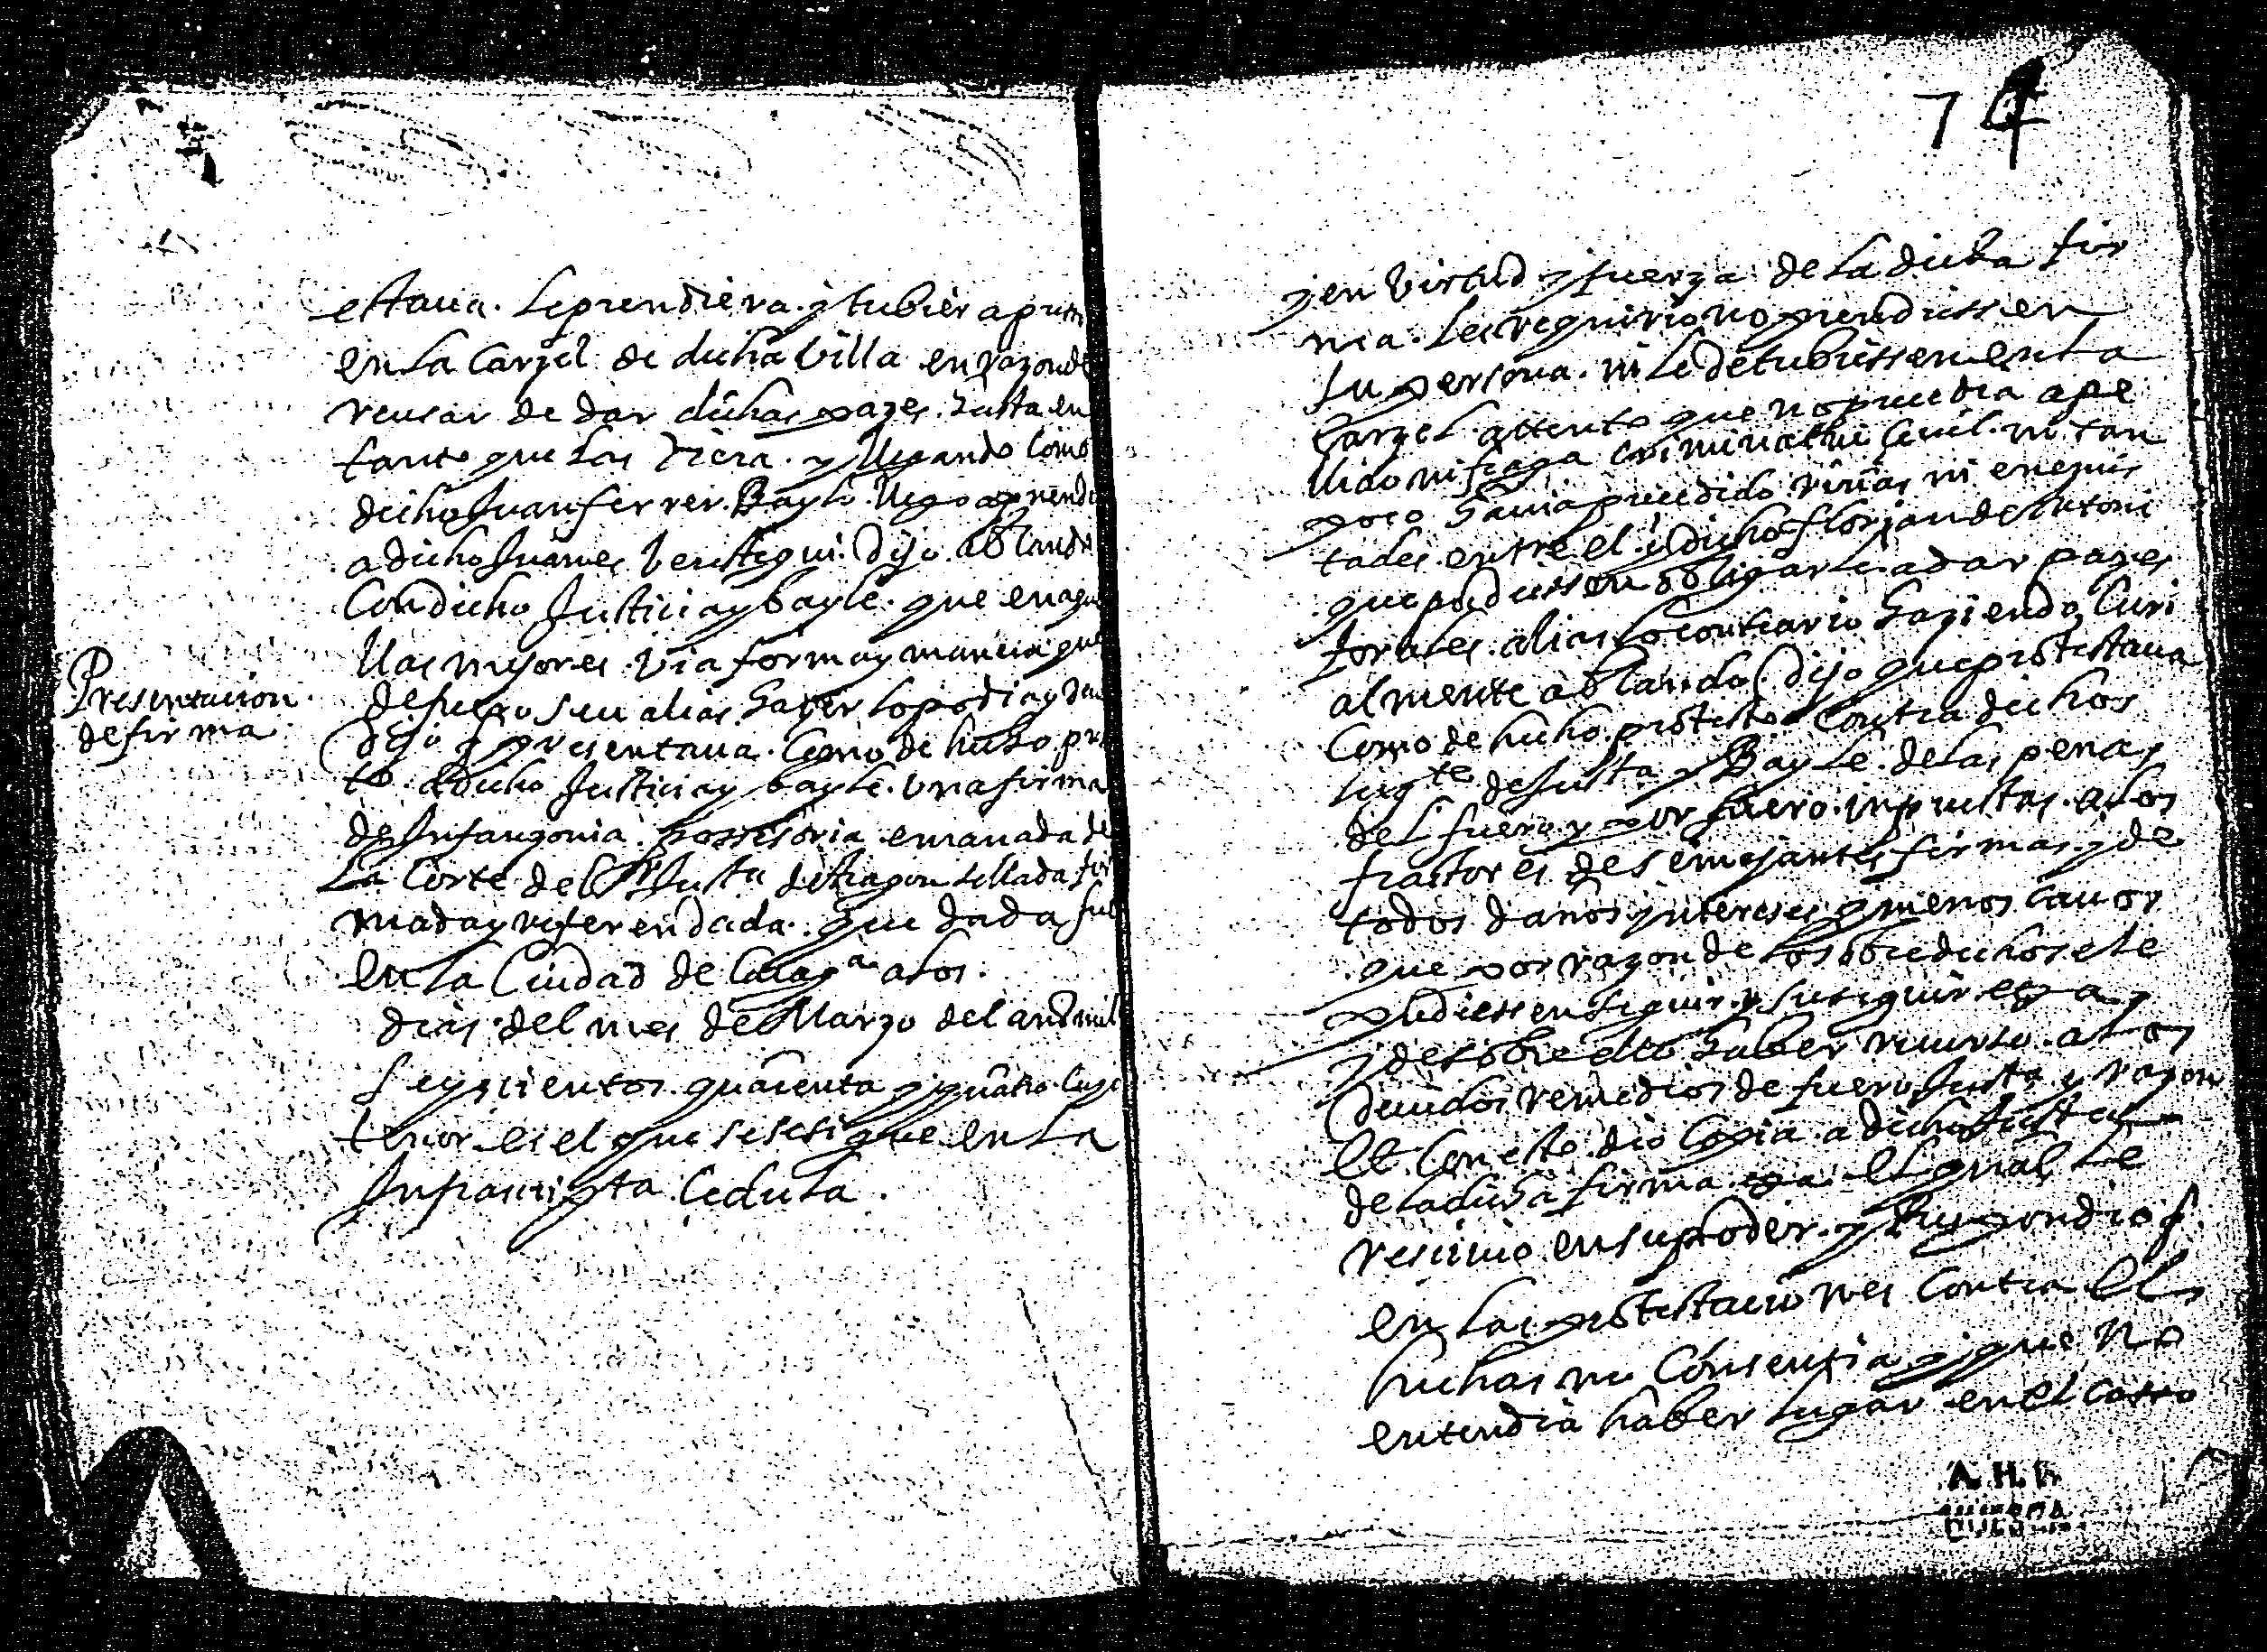 74
estaua. le prendiera. y tubiera
en la Carzel de dicha Villa en razon de
reusar de dar dichas pazes. hasta en
tanto que las diera. y llegando Como
dicho Juan ferrer. Bayle. llego a prende
a dicho Juanes Verastegui. dijo ablando
Con dicho Justicia y bayle. que en aque
llas mejores. via forma y manera que
Presentacion
de firma
de fuero seu alias hazer lo podia y deu
dijo q presentaua. Como de hecho pre
to. a dicho Justicia y bayle. vna firma
de Infançonia possesoria emanada de
La Corte del Justa de Aragon sellada fir
mada y referendada. que dada fue
en la Ciudad de Carag.a a los.
dias. del mes de Marzo del año mil
seyscientos. quarenta y quatro. Cuyo
tenor. es el que se sesigue en la
Infrascripta Cedula.
y en Virtud y fuerza de la dicha fir
ma. les requirio no prendiessen
su persona. ni le detubiessen en la
Carzel. attento que no precedia ape
llido ni fraga criminal ni Ceuil. ni tan
poco hauia precedido riñas ni enemis
tades. entre el. y dicho florian de
que pudiessen obligarle a dar pazes
forales. alias lo contrario haziendo Curi
almente ablando dijo que protestaua
Como de hecho. protesto Contra dichos
lugte de Justa y Bayle. de las penas
del fuero y por fuero. inpuestas. a los
fractores de semejantes firmas. y de
todos daños yntereses y menos cauos
que por razon de lo sobredicho se le
pudiessen seguir. y subseguir
y de sobre ello haber recurso. a los
deuidos remedios de fuero Justa y razon
Et Con esto. dio Copia. a dicho Justa
de la dicha firma el qual le
resciuio en su poder. y Respondio q
en las protestaciones Contra el
hechas no Consentia y que no
entendia haber lugar en el casso
A. H. P.
HUESCA